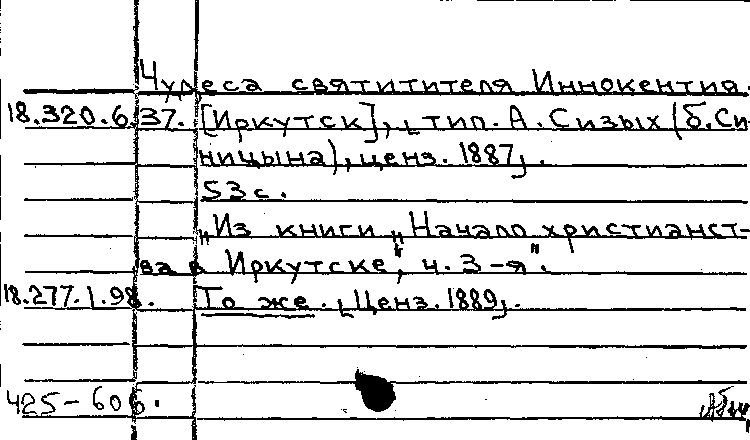 Чудеса святитителя Иннокентия.
18.320.6.37. [Иркутск], тип. А. Сизых (б. Си
ницына), ценз. 1887,.
53 с.
„Из книги „Начало христианст-
ва в Иркутске", ч. 3-я".
18.277.1.98. То же. Ценз. 1889,.
425-606.